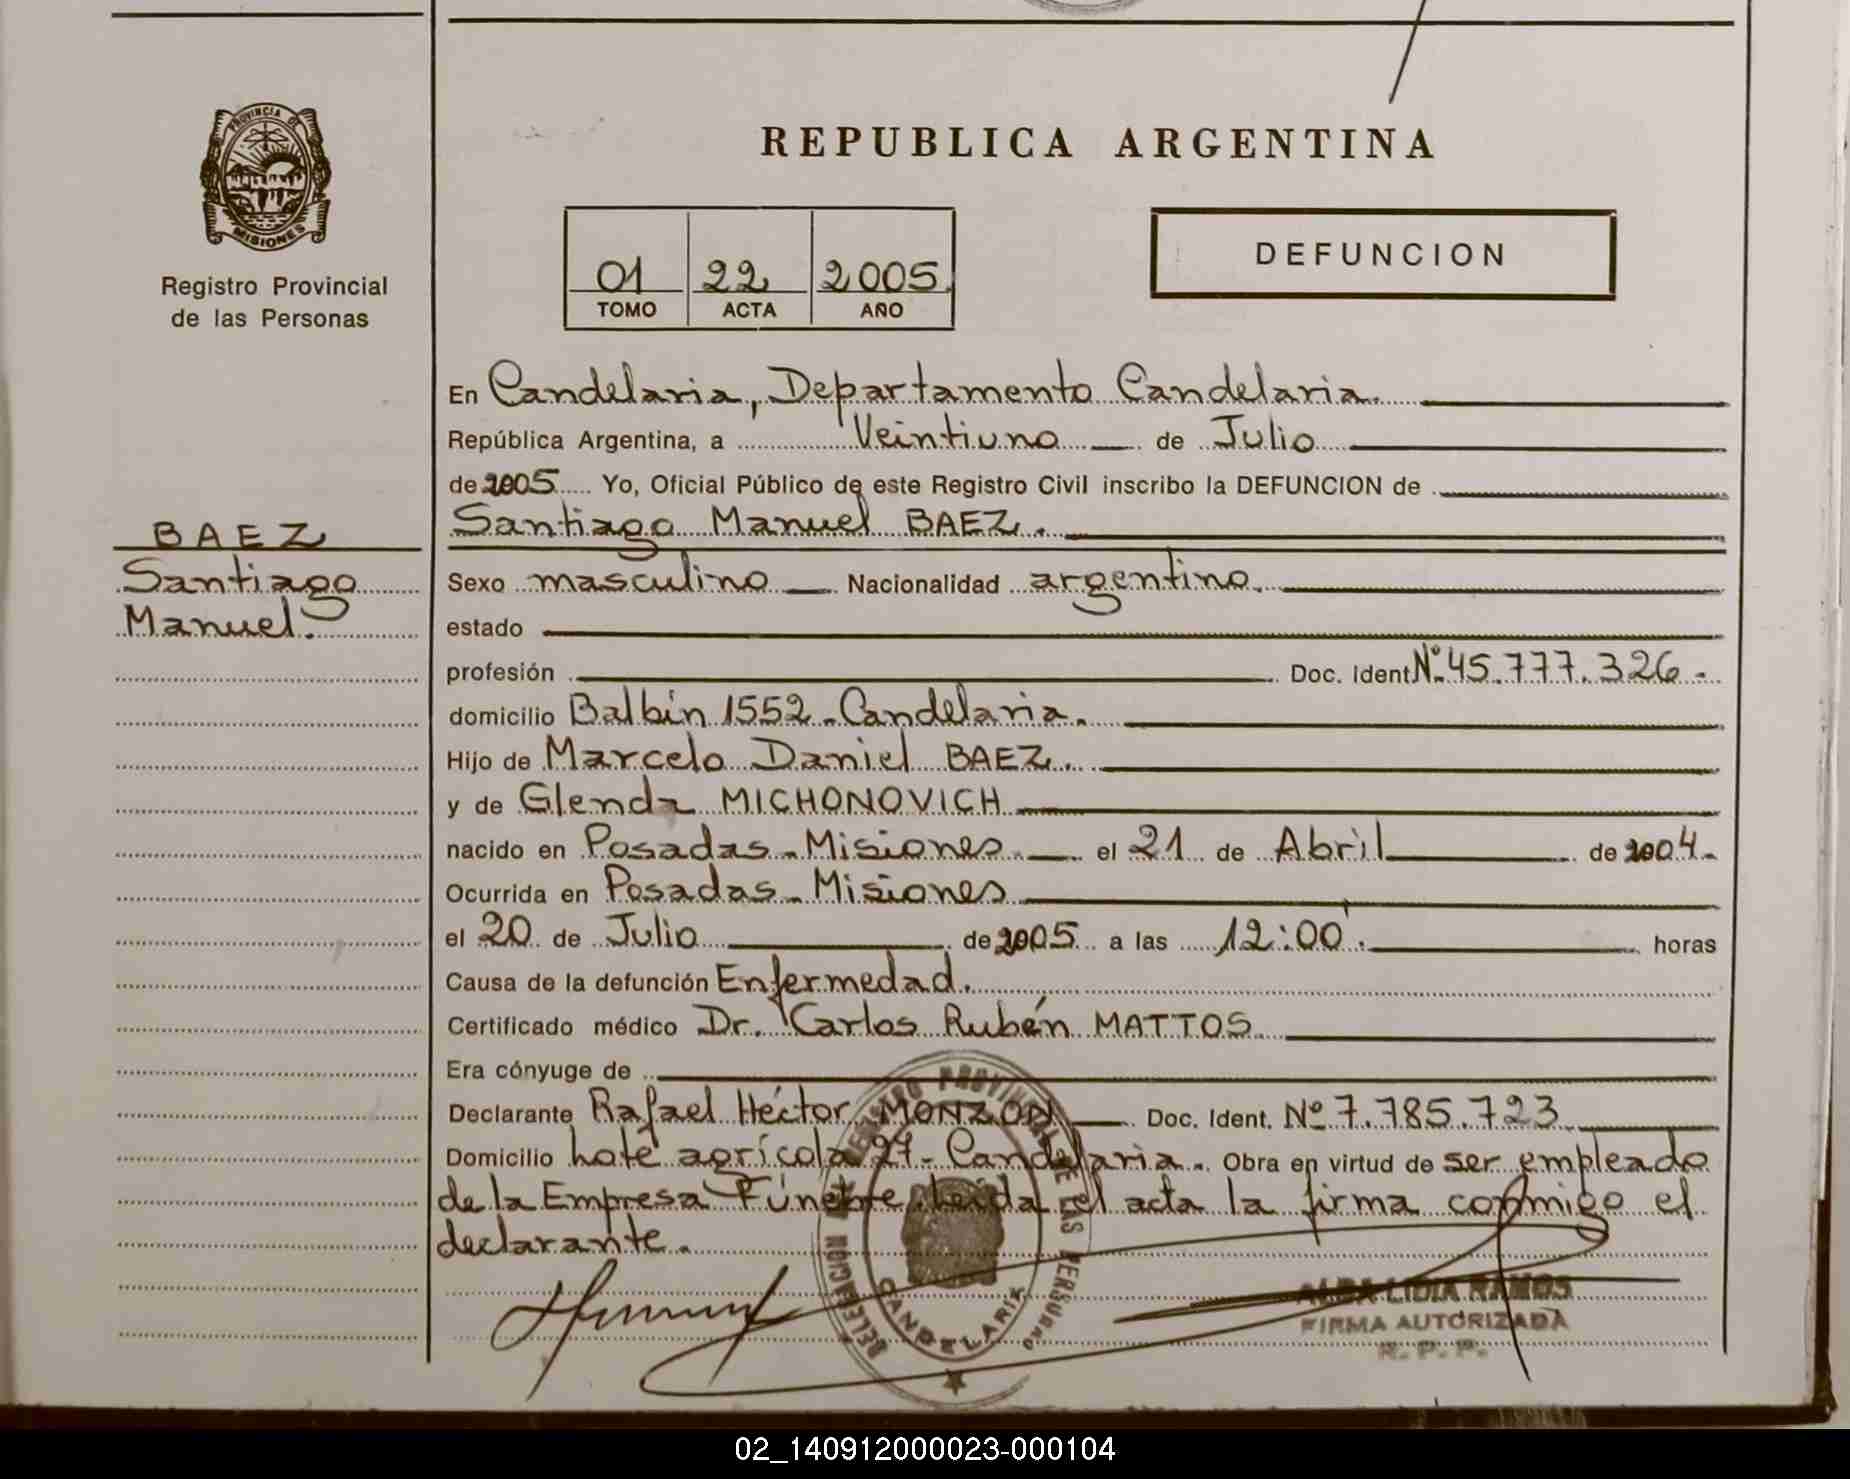 PROVINCIA DE
MISIONES
Registro Provincial
de las Personas
BAEZ
Santiago
Manuel.
REPUBLICA ARGENTINA
01 22 2005
TOMO ACTA AÑO
DEFUNCION
En Candelaria, Departamento Candelaria.
República Argentina, a Veintiuno de Julio
de 2005 Yo, Oficial Público de este Registro Civil inscribo la DEFUNCION de
Santiago Manuel BAEZ.
Sexo masculino Nacionalidad argentino.
estado
profesión Doc. Ident Nº 45.777.326-
domicilio Balbín 1552-Candelaria.
Hijo de Marcelo Daniel BAEZ.
y de Glenda MICHONOVICH
nacido en Posadas-Misiones el 21 de Abril de 2004.-
Ocurrida en Posadas-Misiones
el 20 de Julio de 2005 a las 12:00'. horas
Causa de la defunción Enfermedad.
Certificado médico Dr. Carlos Rubén MATTOS.
Era cónyuge de
Declarante Rafael Héctor MONZON Doc. Ident. Nº 7.785.723
Domicilio Lote agrícola 27-Candelaria. Obra en virtud de ser empleado
de la Empresa Fúnebre. Leída el acta la firma conmigo el
declarante.
REGISTRO PROVINCIAL DE LAS PERSONAS
DELEGACION
CANDELARIA
ALBA LIDIA RAMOS
FIRMA AUTORIZADA
R. P. P.
02_140912000023-000104